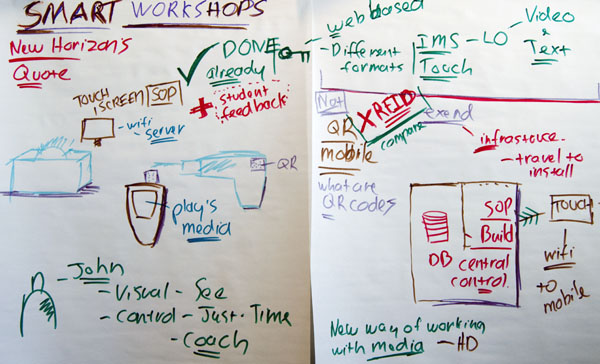 SMART WORKSHOPS
New Horizon's
Quote
DONE
already
+ student
feedback
TOUCH
SCREEN SOP
- wifi
server
QR
play's
media
John
- Visual - See
- Control - Just-Time
- Coach
- web based
- Different
formats
IMS - LO - Video
& Text
Touch
Not
X RFID
compare
QR
mobile
what are
QR codes
- travel to
install
SOP
Build
DB central
control
TOUCH
wifi
to
mobile
New way of working
with media - HD